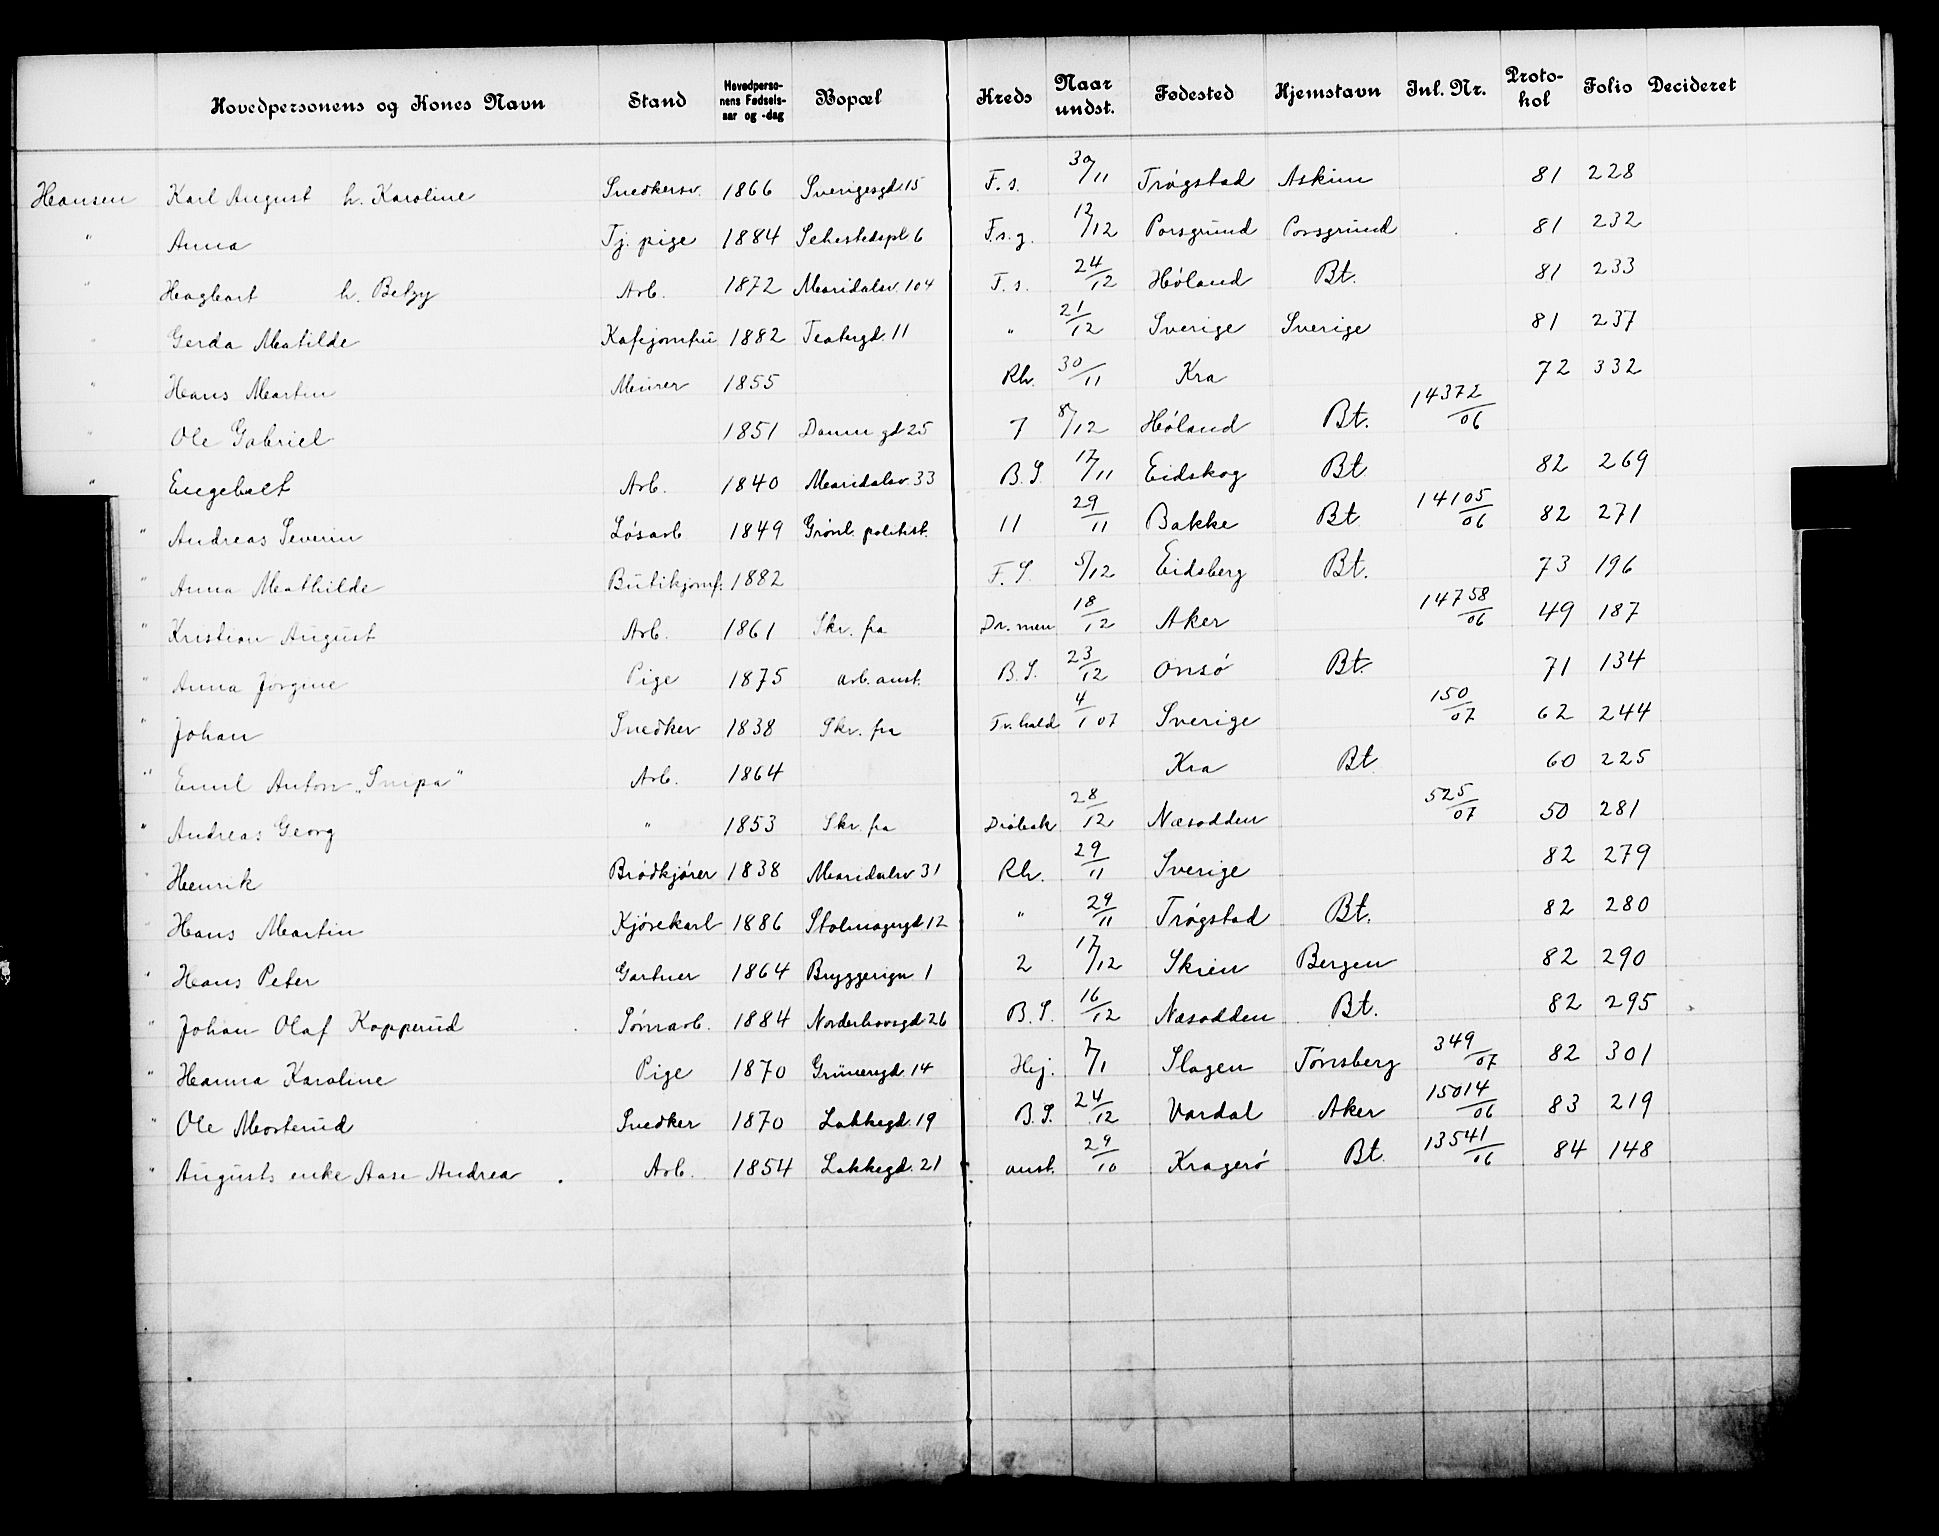 Hovedpersonens og Kones Navn Stand Hovedpersonens Fødselsaar og -dag Bopæl Kreds Naar undst. Fødested Hjemstavn Inl. Nr. Protokol Folio Decideret
Hansen Karl August h. Karoline Snedkersv. 1866 Sverigesgd. 15 F. s. 30/11 Trøgstad Askim 81 228
" Anna Tj. pige 1884 Sehestedspl 6 F.s.g. 12/12 Porsgrund Porsgrund 81 232
" Hagbart h. Betzy Arb. 1872 Maridalsv. 104 F. s. 24/12 Høland Bt. 81 233
" Gerda Matilde Kafejomfru 1882 Teatergd. 11 " 21/12 Sverige Sverige 81 237
" Hans Martin Murer 1855 Rh. 30/11 Kra 72 332
" Ole Gabriel 1851 Damm gd 25 7 8/12 Høland Bt. 14372/06
" Engebret Arb. 1840 Maridalsv. 33 B. S. 17/11 Eidskog Bt 82 269
" Andreas Severin Løsarb 1849 Grønl. politist. 11 29/11 Bakke Bt 14105/06 82 271
" Anna Mathilde Butikjomf. 1882 F. S. 5/12 Eidsberg Bt. 73 196
" Kristian August Arb. 1861 Skr. fra Dr. men 18/12 Aker 14758/06 49 187
" Anna Jørgine Pige 1875 arb. anst. B. S. 23/12 Onsø Bt. 71 134
" Johan Snedker 1838 Skr. fra Fr. hald 4/1 07 Sverige 150/07 62 244
" Emil Anton „Snipa" Arb. 1864 Kra Bt 60 225
" Andreas Georg " 1853 Skr. fra Drøbak 28/12 Næsodden 525/07 50 281
" Henrik Brødkjører 1838 Maridalsv 31 Rh. 29/11 Sverige 82 279
" Hans Martin Kjørekarl 1886 Stolmagergd 12 " 29/11 Trøgstad Bt. 82 280
" Hans Peter Gartner 1864 Bryggerign 1 2 17/12 Skien Bergen 82 290
" Johan Olaf Kopperud Tømarb. 1884 Norderhovsgd 26 B. S. 16/12 Næsodden Bt. 82 295
" Hanna Karoline Pige 1870 Grünersgd. 14 Hj. 7/1 Slagen Tønsberg 349/07 82 301
" Ole Mosterud Snedker 1870 Lakkegd. 19 B. S. 24/12 Vardal Aker 15014/06 83 219
" Augusts enke Aase Andrea Arb. 1854 Lakkegd. 21 anst. 29/10 Kragerø Bt. 13541/06 84 148